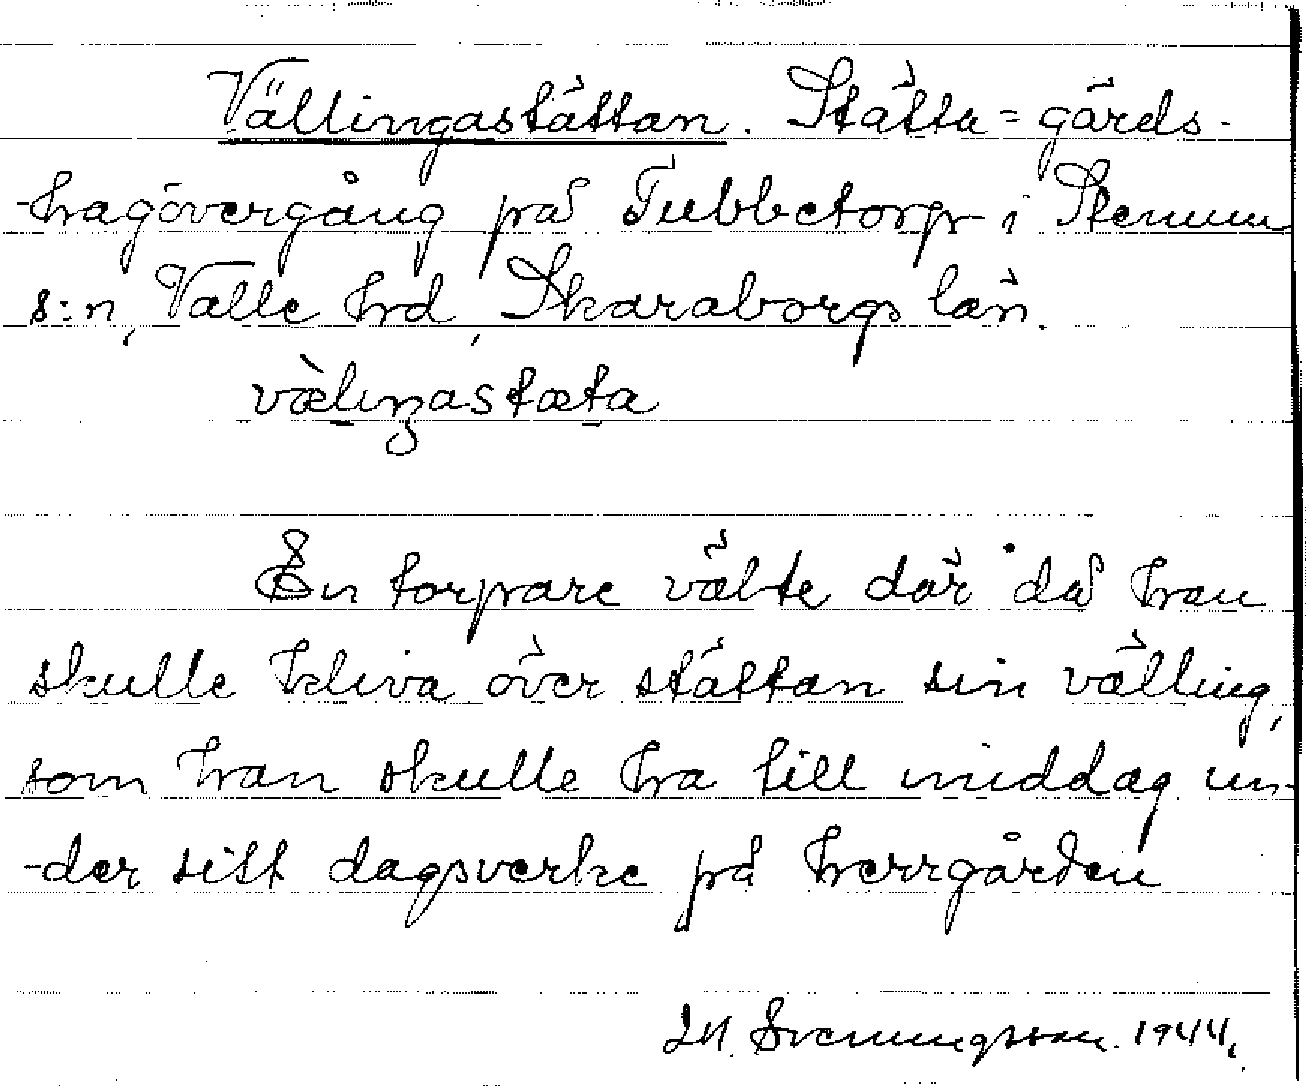 Vällingastättan. Stätta = gärds-
-hagövergång på Tubbetorp i Stenum
s:n, Valle hrd, Skaraborgs län.
vælıŋastæta
En torpare välte där då han
skulle kliva över stättan sin välling,
som han skulle ha till middag un-
-der sitt dagsverke på herrgården
Svenungsson. 1944.